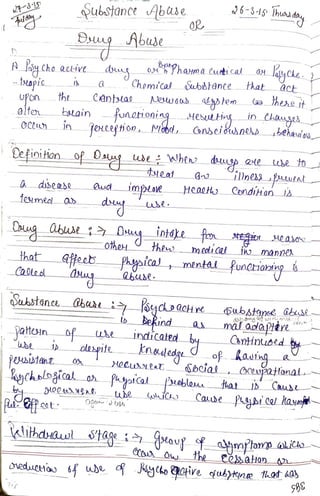 Substance Abuse 26-3-15 Thursday
OR
Drug Abuse
A Psycho active drug or Bio Pharma cuetical or Psyche.
-tropic is a Chemical Substance that act
upon the Central Nervous System where it
alter brain functioning resulting in changes
occur in perception, Mood, Consciousness, behaviou
Definition of Drug use :- When drugs are use to
treat an illness, prevent
a disease and improve Health Condition is
termed as drug use.
Drug abuse :-> Drug intake for reason
other then medical in manner
that affect physical, mental functioning is
called drug abuse.
Substance abuse :-> Psychoactive substance abuse
is Defind as maladaptive
pattern of use indicated by Continued
use is despite knowledge of having a
persistant or recurrent Social, Occupational,
Psychological or physical problem that is Cause
by recurrent use which Cause physical harm
effect.
Withdrawl stage :-> Group of symptoms which
occur on the cessation or
reduction of use of Psycho active substance that has